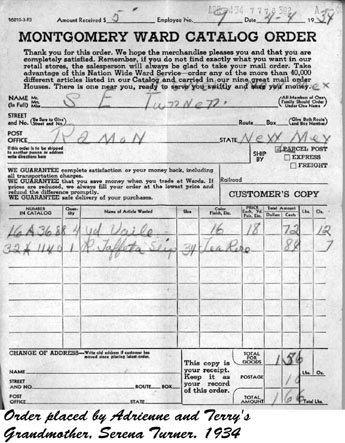 Amount Received $ 5 Employee No. 9 Date 4-4 1934
MONTGOMERY WARD CATALOG ORDER
Thank you for this order. We hope the merchandise pleases you and that you are
completely satisfied. Remember, if you do not find exactly what you want in our
retail stores, the salesperson will always be glad to take your mail order. Take
advantage of this Nation Wide Ward Service—order any of the more than 40,000
different articles listed in our Catalog and carried in our nine great mail order
Houses. There is one near you, ready to serve you swiftly and save you money.
Name (In Full) Mr. Mrs. Miss S E Turner (All Members of One Family Should Order Under One Name
STREET and No. (Be Sure to Give Street and No.) Route Box (Give Both Route and Box Number)
POST OFFICE Ramon STATE New Mex
If this order is to be shipped to another person is address write directions here
SHIP BY
PARCEL POST
EXPRESS
FREIGHT
WE GUARANTEE complete satisfaction or your money back, including
all transportation charges.
WE GUARANTEE that you save money when you trade at Wards. If
prices are reduced, we always fill your order at the lowest price and
refund the difference promptly.
WE GUARANTEE safe delivery of your purchases.
Railroad
CUSTOMER'S COPY
NUMBER IN CATALOG Quantity Name of Article Wanted Size Color, Finish, Etc. PRICE Each, Yd. Pair, Etc. Total Amount Dollars Cents Lbs. Oz.
16A3688 4 yd Voile 16 18 72 12
32A1140 1 R Taffeta Slip 34 Tea Rose 84 7
CHANGE OF ADDRESS—Write old address if customer has moved since placing latest order.
NAME
STREET AND NO. ROUTE BOX
POST OFFICE STATE
This copy is your receipt. Keep it as your record of this order.
TOTAL FOR GOODS 1 56
POSTAGE 10
TOTAL AMOUNT 1 66
Lbs. Oz.
Order placed by Adrienne and Terry's
Grandmother, Serena Turner. 1934